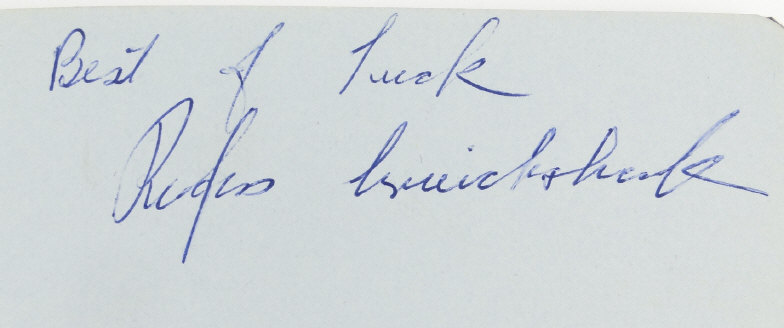 Best of Luck
Rufus Cruickshank